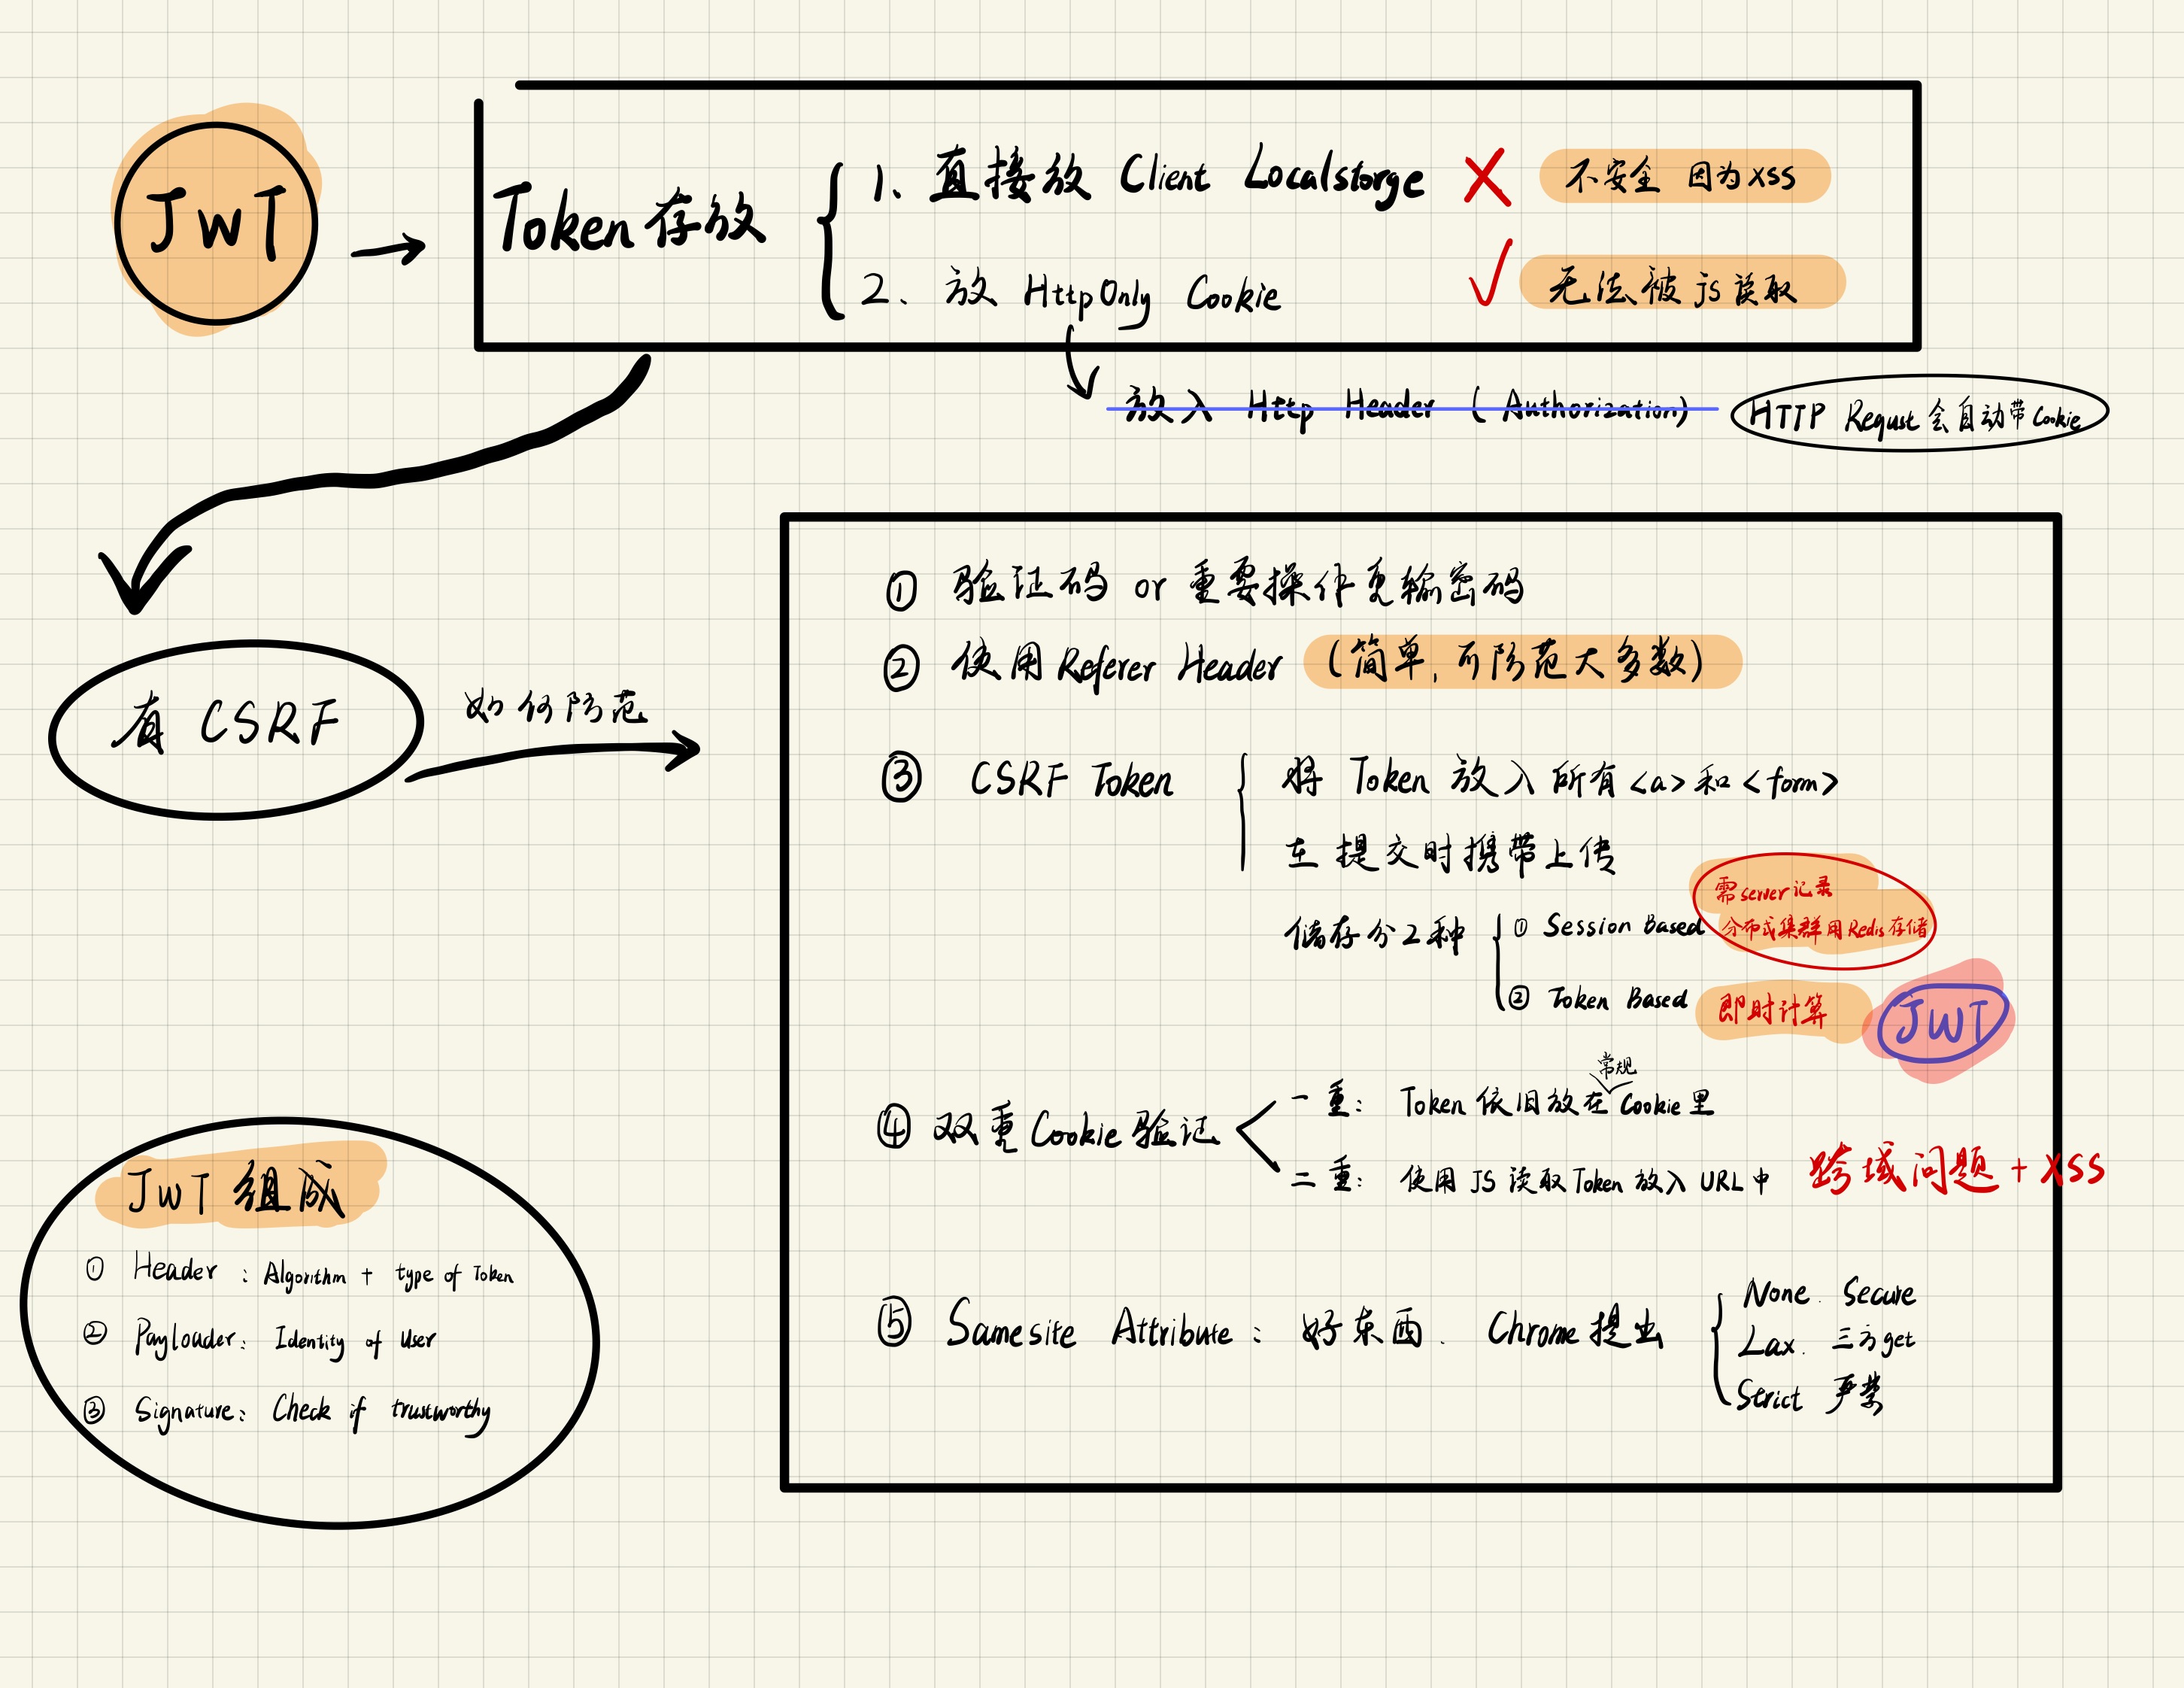 JWT
Token 存放
1、直接放 Client Localstorge
不安全 因为XSS
2、放 HttpOnly Cookie
无法被js读取
放入 Http Header ( Authorization)
HTTP Requst 会自动带 Cookie
有 CSRF
如何防范
① 验证码 or 重要操作更输密码
② 使用 Referer Header (简单, 可防范大多数)
③ CSRF Token
将 Token 放入所有 <a> 和 <form>
在提交时携带上传
储存分2种
① Session Based
需 server 记录
分布式集群用 Redis 存储
② Token Based
即时计算
JWT
④ 双重 Cookie 验证
一重: Token 依旧放在常规 Cookie 里
二重: 使用 JS 读取 Token 放入 URL 中
跨域问题 + XSS
⑤ Samesite Attribute: 好东西. Chrome 提出
None. Secure
Lax. 三方 get
Strict 严禁
JWT 组成
① Header : Algorithm + type of Token
② Payloader: Identity of User
③ Signature: Check if trustworthy